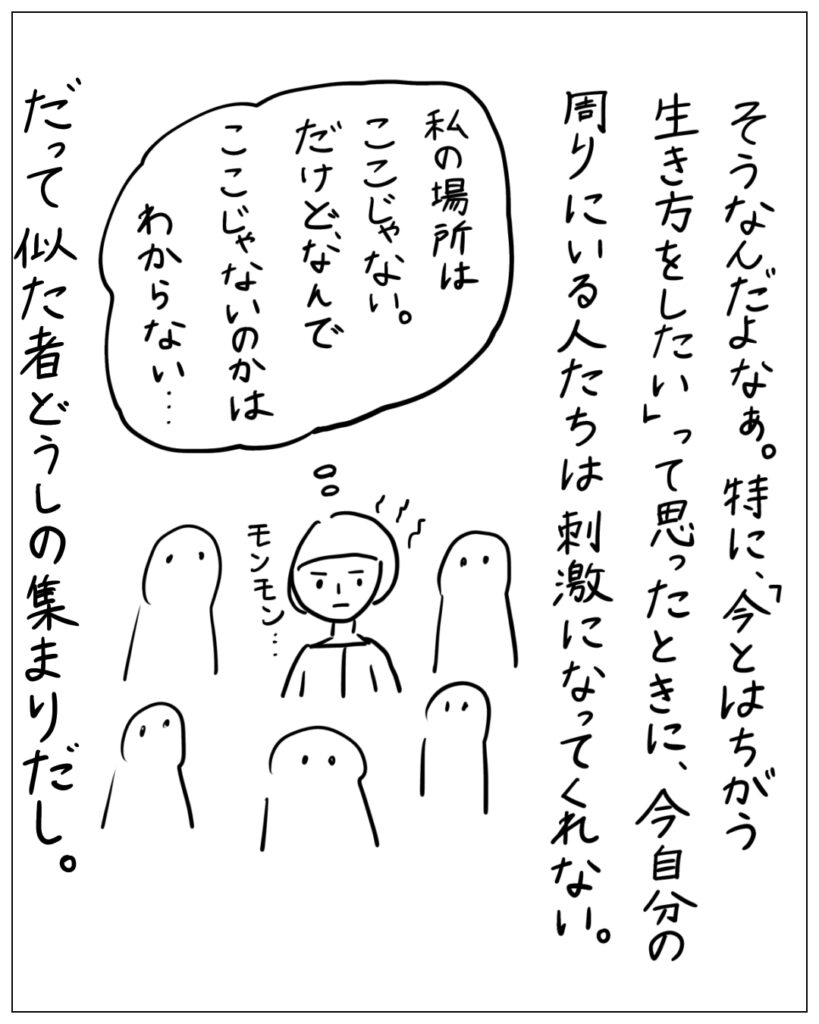 そうなんだよなぁ。特に、「今とはちがう
生き方をしたい」って思ったときに、今自分の
周りにいる人たちは刺激になってくれない。
私の場所は
ここじゃない。
だけど、なんで
ここじゃないのかは
わからない…
モンモン…
だって似た者どうしの集まりだし。